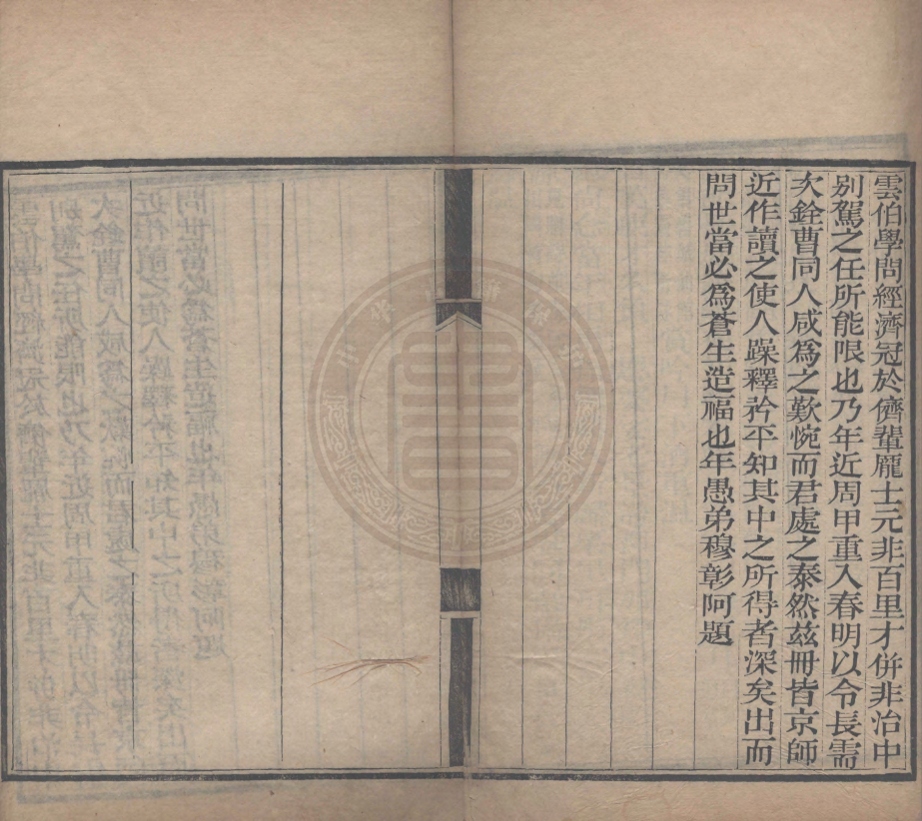 雲伯學問經濟冠於儕輩龎士元非百里才併非治中
別駕之任所能限也乃年近周甲重入春明以令長需
次銓曹同人咸為之歎惋而君處之泰然茲冊皆京師
近作讀之使人躁釋矜平知其中之所得者深矣出而
問世當必為蒼生造福也年愚弟穆彰阿題